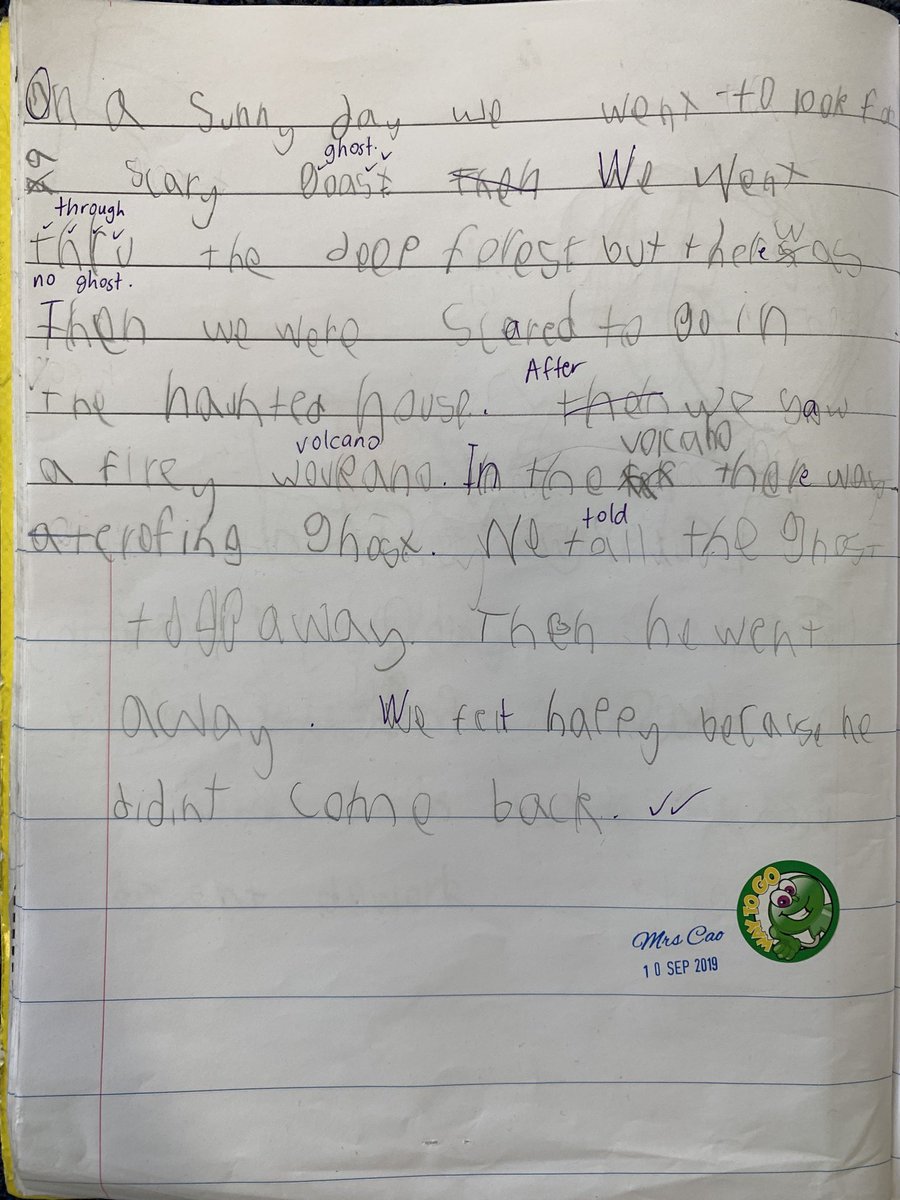 On a Sunny day we went to look for
ghost.
a scary goast then We went
through
thru the deep forest but there was
no ghost.
Then we were scared to go in
After
The haunted house. then we saw
volcano volcano
a firey wolkano. In the there was
a terofing ghost. We tall the ghost
told
to go away. Then he went
away. We felt happy because he
didint come back.
WAY TO GO
Mrs Cao
10 SEP 2019